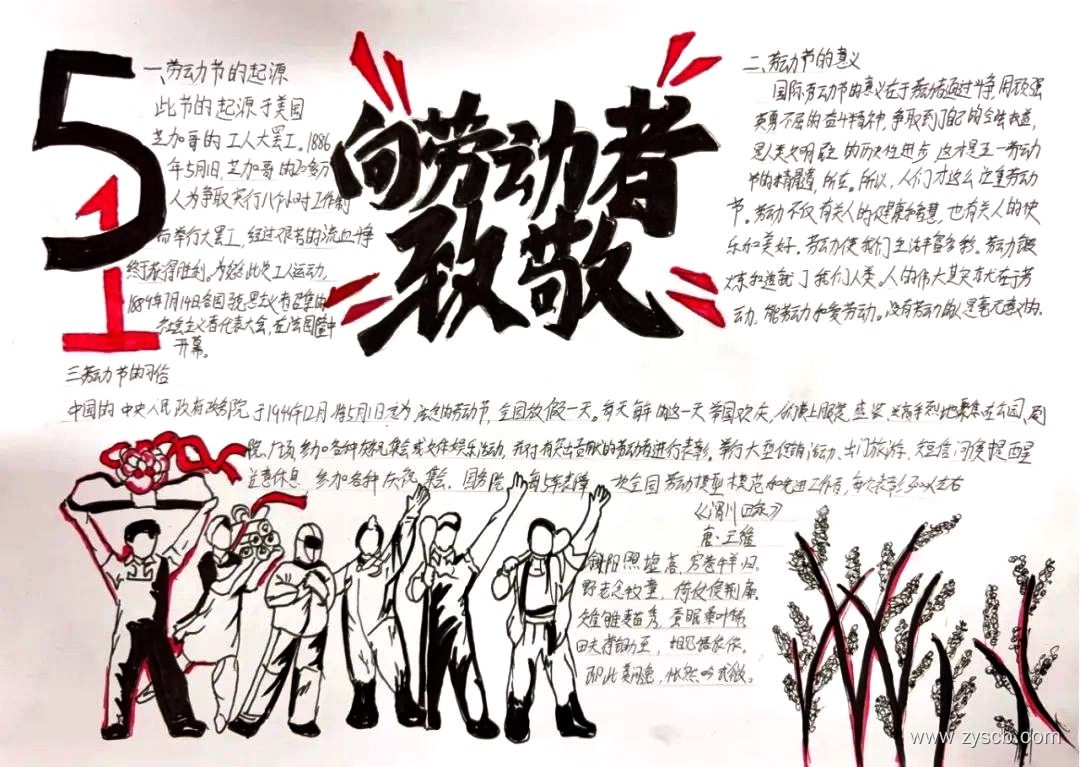 51
向劳动者
致敬
一、劳动节的起源
此节的起源于美国
芝加哥的工人大罢工。1886
年5月1日,芝加哥的20多万
人为争取实行八个小时工作制
而举行大罢工,经过艰苦的流血
终于获得胜利。为纪念此次工人运动,
1889年7月14日各国
社会主义者代表大会,在法国
开幕。
二、劳动节的意义
国际劳动节的意义在于劳动者通过 用顽强
英勇不屈的奋斗精神,争取到了自己的合法
是人类文明 的历史性进步 这才是五一劳动
节的精髓 所在。所以,人们才这么注重劳动
节。劳动不仅有关人的健康和智慧,也有关人的快
乐和美好。劳动使我们生活丰富多彩。劳动锻
炼和造就了我们人类。人的伟大其实 在于劳
动,能劳动和爱劳动。没有劳动的人是毫无意义的。
三、劳动节的习俗
中国的中央人民政府政务院于1949年12月将5月1日定为法定的劳动节,全国放假一天。每 的这一天举国欢庆
院、广场参加各种庆祝集会或文体娱乐活动,并对有突出贡献的劳动者进行表彰。举行大型促销活动、出门旅游、短信问候提醒
注意休息 参加各种庆祝集会。国务院 每5年表彰一次全国劳动模
《渭川田家》
唐·王维
斜阳照墟落,穷巷牛羊归。
野老念牧童,倚杖候荆扉。
雉雊麦苗秀,蚕眠桑叶稀。
田夫荷锄至,相见语依依。
即此羡闲逸,怅然吟式微。
www.zyscb.com